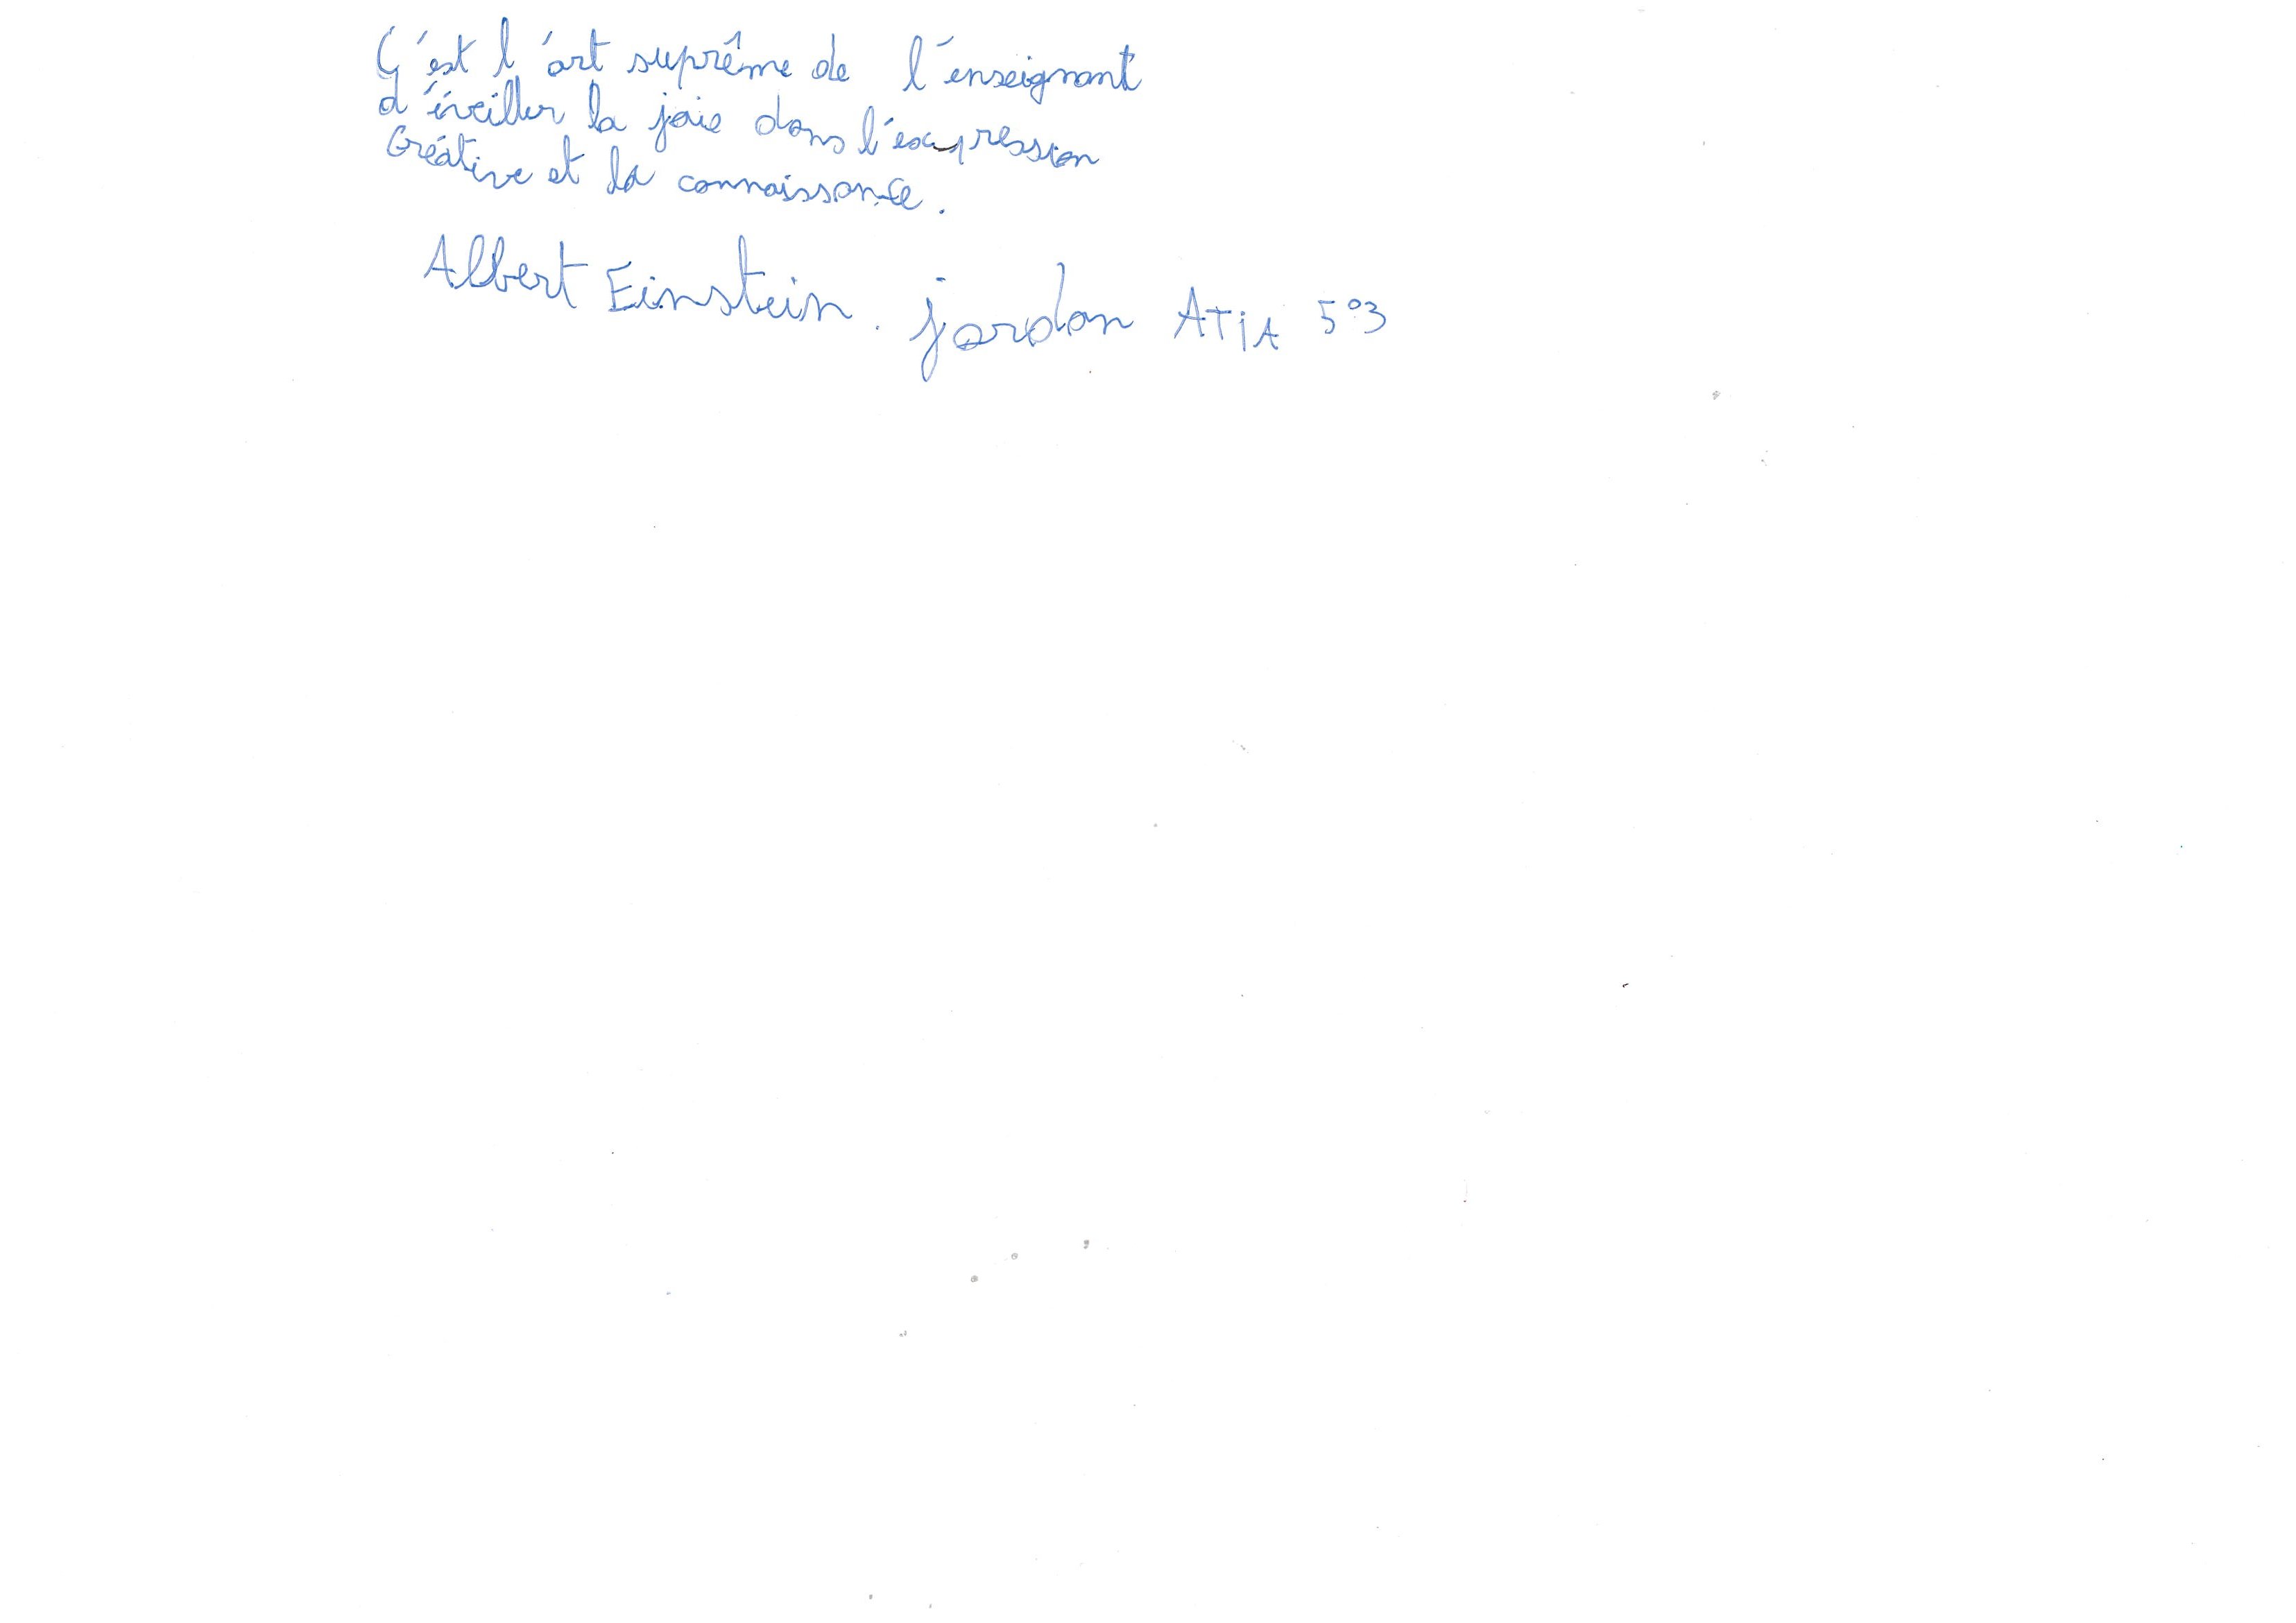 C'est l'art suprême de l'enseignant
d'éveiller la joie dans l'expression
Créative et la connaissance.
Albert Einstein. jordan ATiA 5°3